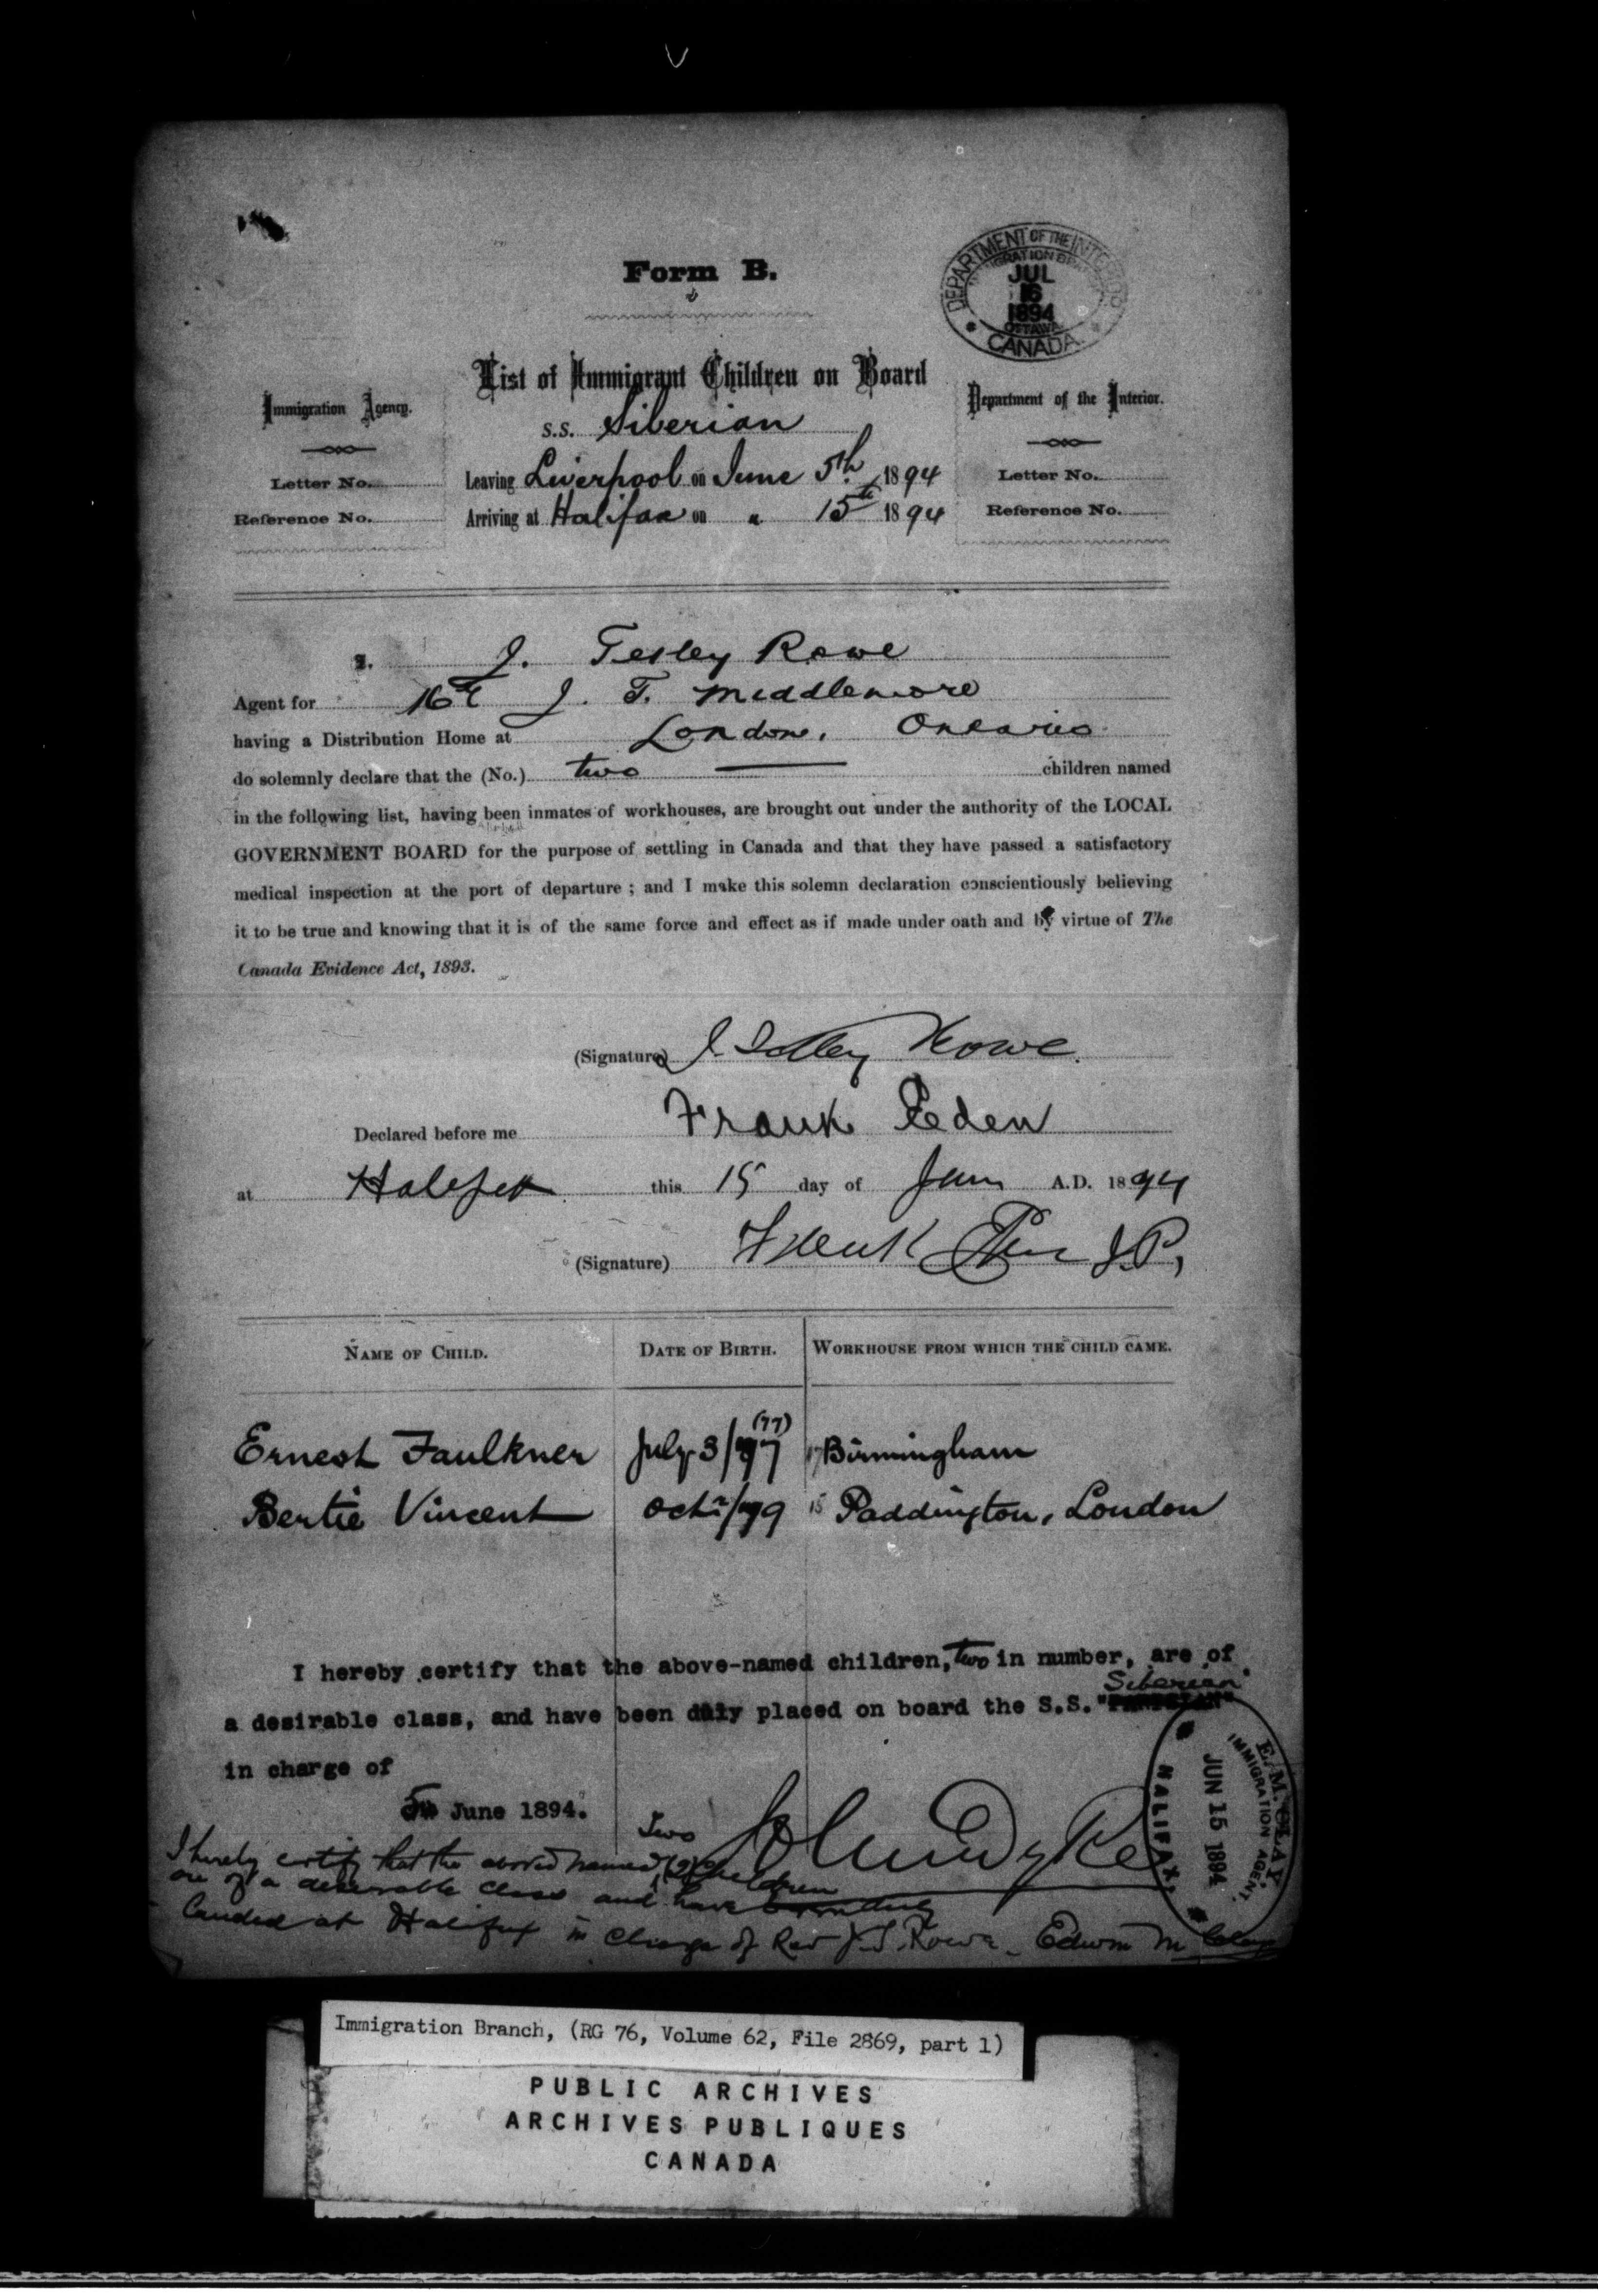 Form B.
DEPARTMENT OF THE INTERIOR
IMMIGRATION
JUL
16
1894
OTTAWA
CANADA
List of Immigrant Children on Board
Immigration Agency.
Department of the Interior.
S.S. Siberian
Letter No.
Leaving Liverpool on June 5th 1894
Letter No.
Reference No.
Arriving at Halifax on " 15th 1894
Reference No.
J. Tetley Rowe
Agent for J. T. Middlemore
having a Distribution Home at London, Ontario
do solemnly declare that the (No.) two children named
in the following list, having been inmates of workhouses, are brought out under the authority of the LOCAL
GOVERNMENT BOARD for the purpose of settling in Canada and that they have passed a satisfactory
medical inspection at the port of departure ; and I make this solemn declaration conscientiously believing
it to be true and knowing that it is of the same force and effect as if made under oath and by virtue of The
Canada Evidence Act, 1893.
(Signature) J. Tetley Rowe.
Declared before me Frank Reden
at Halifax this 15 day of June A.D. 1894
(Signature) Frank J.P,
NAME OF CHILD. DATE OF BIRTH. WORKHOUSE FROM WHICH THE CHILD CAME.
(77)
Ernest Faulkner July 3/77 17 Birmingham
Bertie Vincent Oct /79 15 Paddington, London
I hereby certify that the above-named children, two in number, are of
Siberian
a desirable class, and have been duly placed on board the S.S. "PARISIAN"
in charge of
5th June 1894.
Two
I hereby certify that the above named (2) children
are of a desirable class and have been duly
landed at Halifax in charge of Rev J. T. Rowe. Edwin M Clay
E. M. CLAY,
IMMIGRATION AGENT,
JUN 15 1894
HALIFAX,
Immigration Branch, (RG 76, Volume 62, File 2869, part 1)
PUBLIC ARCHIVES
ARCHIVES PUBLIQUES
CANADA